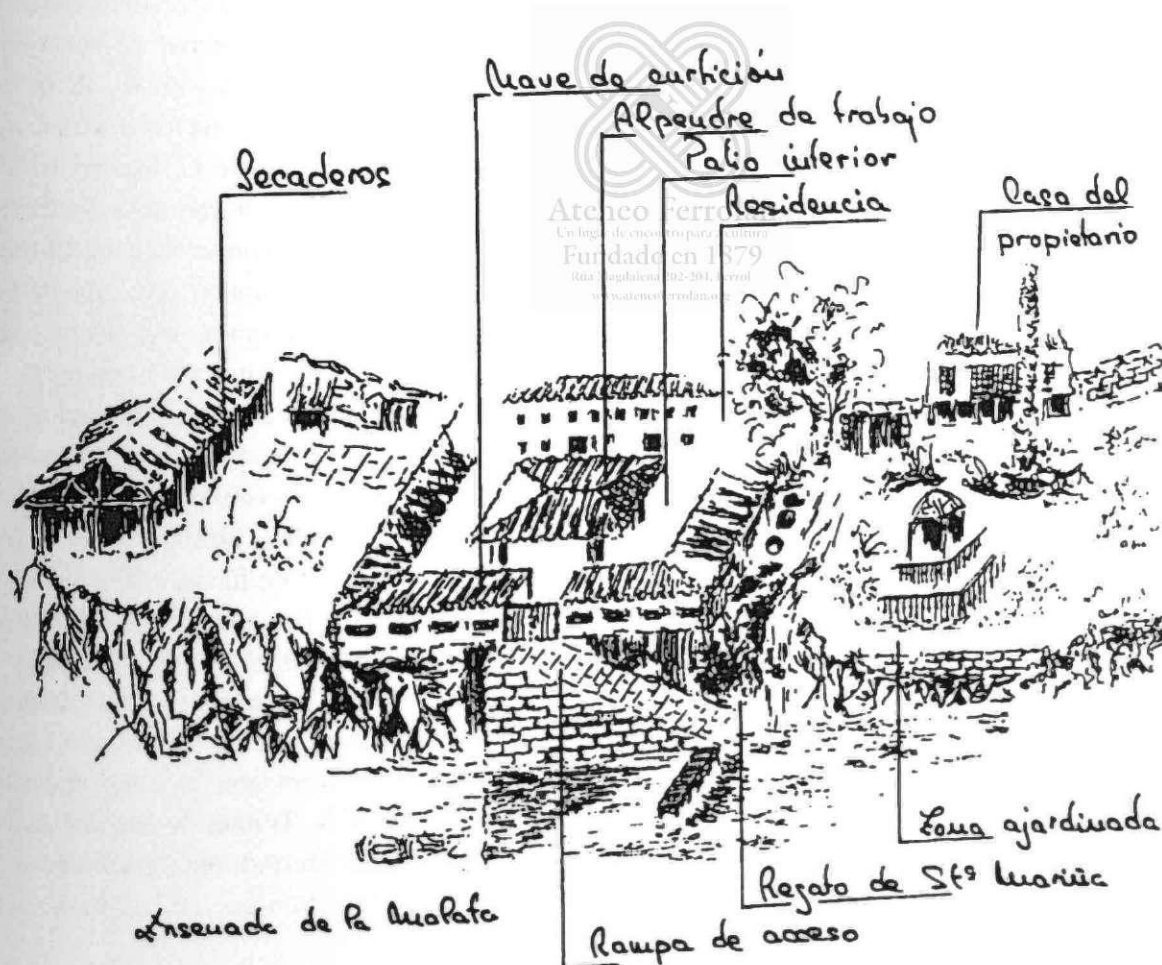 Nave de curtición
Alpendre de trabajo
Patio interior
Residencia
Secaderos
Casa del
propietario
Ateneo Ferrolán
Un lugar de encontro para a cultura
Fundado en 1879
Rúa Magdalena 202-204, Ferrol
www.ateneoferrolan.org
Zona ajardinada
Regato de Stª Mariña
Ensenada de la Malata
Rampa de acceso